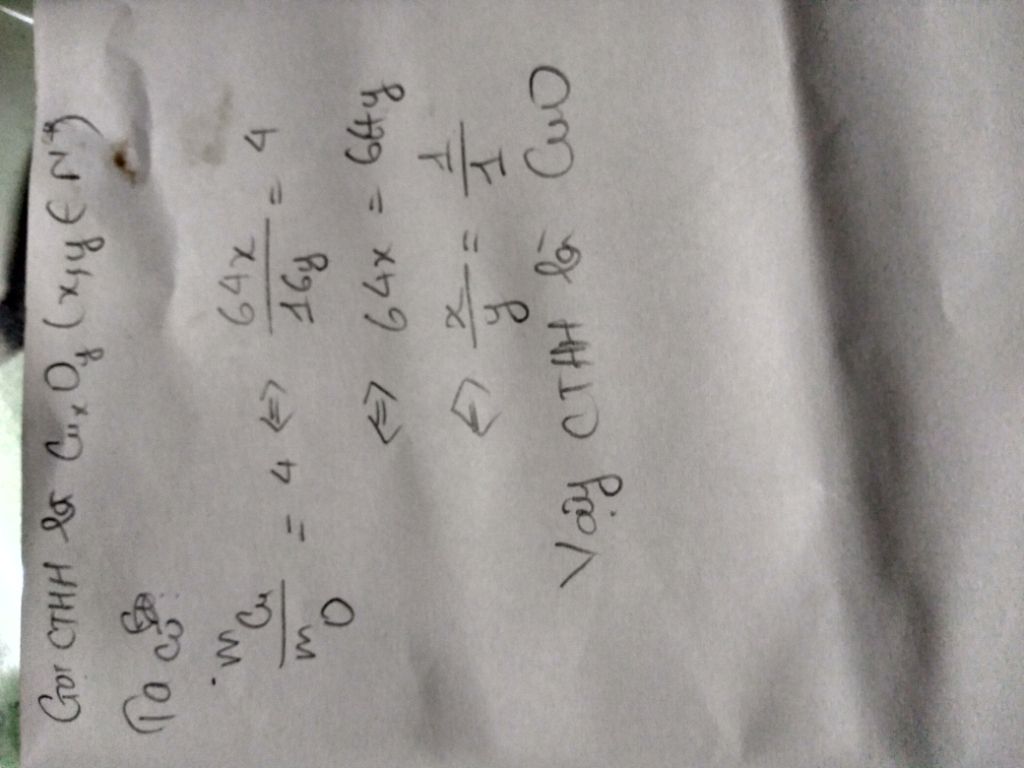 Gọi CTHH là CuxOy (x,y ∈ N*)
Ta có:
mCu/mO = 4 <=> 64x/16y = 4
<=> 64x = 64y
<=> x/y = 1/1
Vậy CTHH là CuO